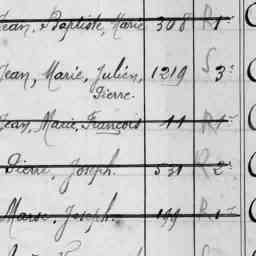 Jean, Baptiste, Marie 308 R 1
Jean, Marie, Julien, 1219 S 3
Pierre.
Jean, Marie, François 11 R 1
Pierre, Joseph. 531 R 2
Joseph. 199 R 1